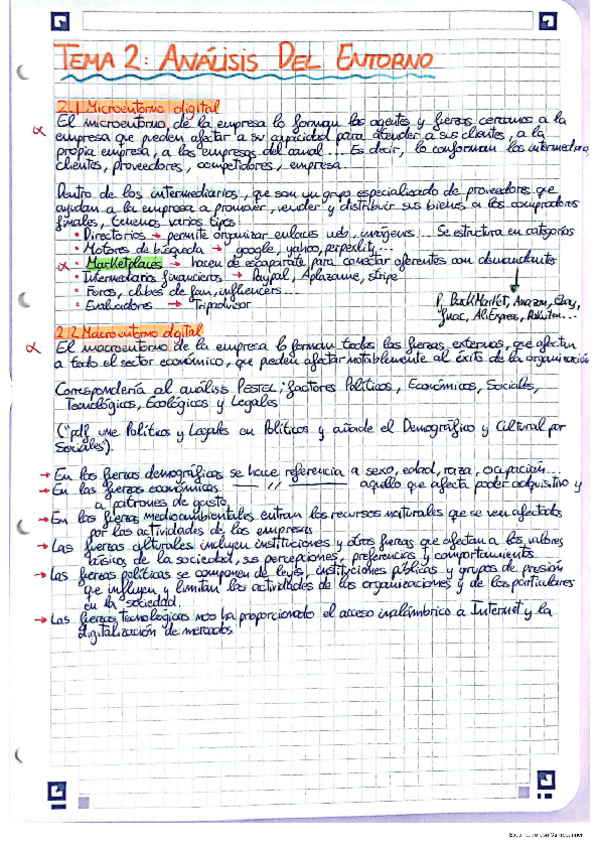 TEMA 2: ANÁLISIS DEL ENTORNO
2.1 Microentorno digital
α El microentorno, de la empresa lo forman los agentes y fuerzas cercanos a la
empresa que pueden afectar a su capacidad para atender a sus clientes, a la
propia empresa, a las empresas del canal... Es decir, lo conforman los intermediarios,
clientes, proveedores, competidores, empresa.
Dentro de los intermediarios, que son un grupo especializado de proveedores que
ayudan a la empresa a promover, vender y distribuir sus bienes a los compradores
finales, tenemos varios tipos
• Directorios → permite organizar enlaces web, imágenes... Se estructura en categorías
• Motores de búsqueda → google, yahoo, perpexlity...
α • Marketplaces → hacen de escaparate para conectar oferentes con demandantes
• Intermediarios financieros → Paypal, Aplazame, stripe
• Foros, clubes de fan, influencers...
• Evaluadores → Tripadvisor
BackMarket, Amazon, Ebay,
fnac, AliExpress, Rakuten...
2.2 Macroentorno digital
α El macroentorno de la empresa lo forman todas las fuerzas, externas, que afectan
a todo el sector económico, que pueden afectar notablemente al éxito de la organización
Correspondería al análisis PESTEL; factores Políticos, Económicos, Sociales,
Tecnológicos, Ecológicos y Legales
("pdf une Políticos y Legales en Políticos y añade el Demográfico y Cultural por
Sociales").
→ En las fuerzas demográficas se hace referencia a sexo, edad, raza, ocupación...
→ En las fuerzas económicas —— // —— aquello que afecta poder adquisitivo y
a patrones de gasto.
→ En las fuerzas medioambientales entran los recursos naturales que se ven afectados
por las actividades de las empresas
→ Las fuerzas culturales incluyen instituciones y otras fuerzas que afectan a los valores
básicos de la sociedad, sus percepciones, preferencias y comportamiento.
→ Las fuerzas políticas se componen de leyes, instituciones públicas y grupos de presión
que influyen y limitan las actividades de las organizaciones y de los particulares
en la sociedad.
→ Las fuerzas tecnológicas nos ha proporcionado el acceso inalámbrico a Internet y la
digitalización de mercados